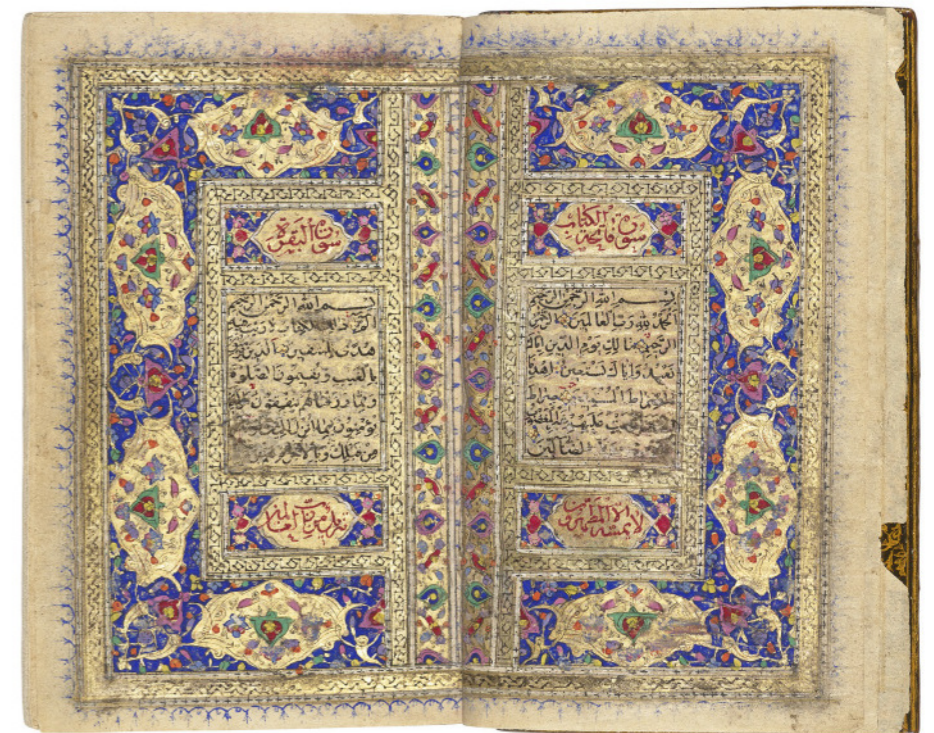 سورة فاتحة الكتاب
بسم الله الرحمن الرحيم
الحمد لله رب العالمين الرحمن
الرحيم مالك يوم الدين اياك
نعبد واياك نستعين اهدنا
الصراط المستقيم صراط
عليهم
لضالين
لا يمسه الا المطهرون
سورة البقرة
بسم الله الرحمن الرحيم
الم ذلك الكتاب لا ريب فيه
هدى للمتقين الذين
بالغيب ويقيمون الصلوة
ومما رزقناهم ينفقون
يؤمنون بما انزل اليك
من قبلك وبالاخرة
تنزيل من رب العالمين